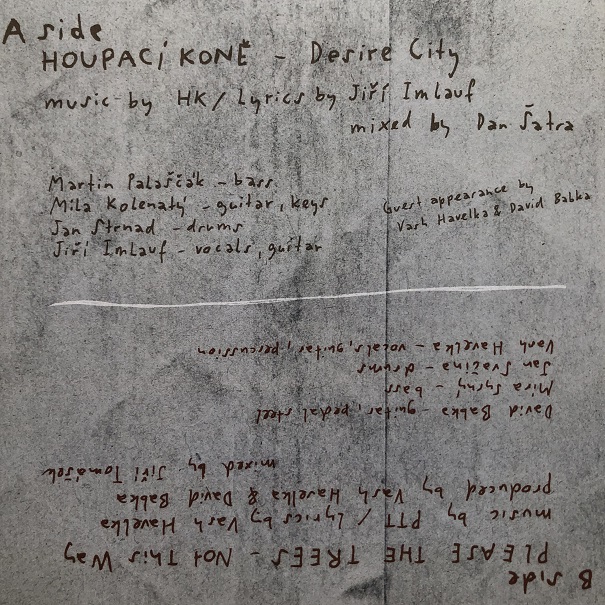 A side
HOUPACÍ KONĚ - Desire City
music by HK / Lyrics by Jiří Imlauf
mixed by Dan Šatra
Martin Palaščák - bass
Míla Kolenatý - guitar, keys
Jan Strnad - drums
Jiří Imlauf - vocals, guitar
Guest appearance by
Vash Havelka & David Babka
B side
PLEASE THE TREES - Not This Way
music by PTT / Lyrics by Vash Havelka
produced by Vash Havelka & David Babka
mixed by Jiří Tomášek
David Babka - guitar, pedal steel
Míra Syrný - bass
Jan Svačina - drums
Vash Havelka - vocals, guitar, percussion